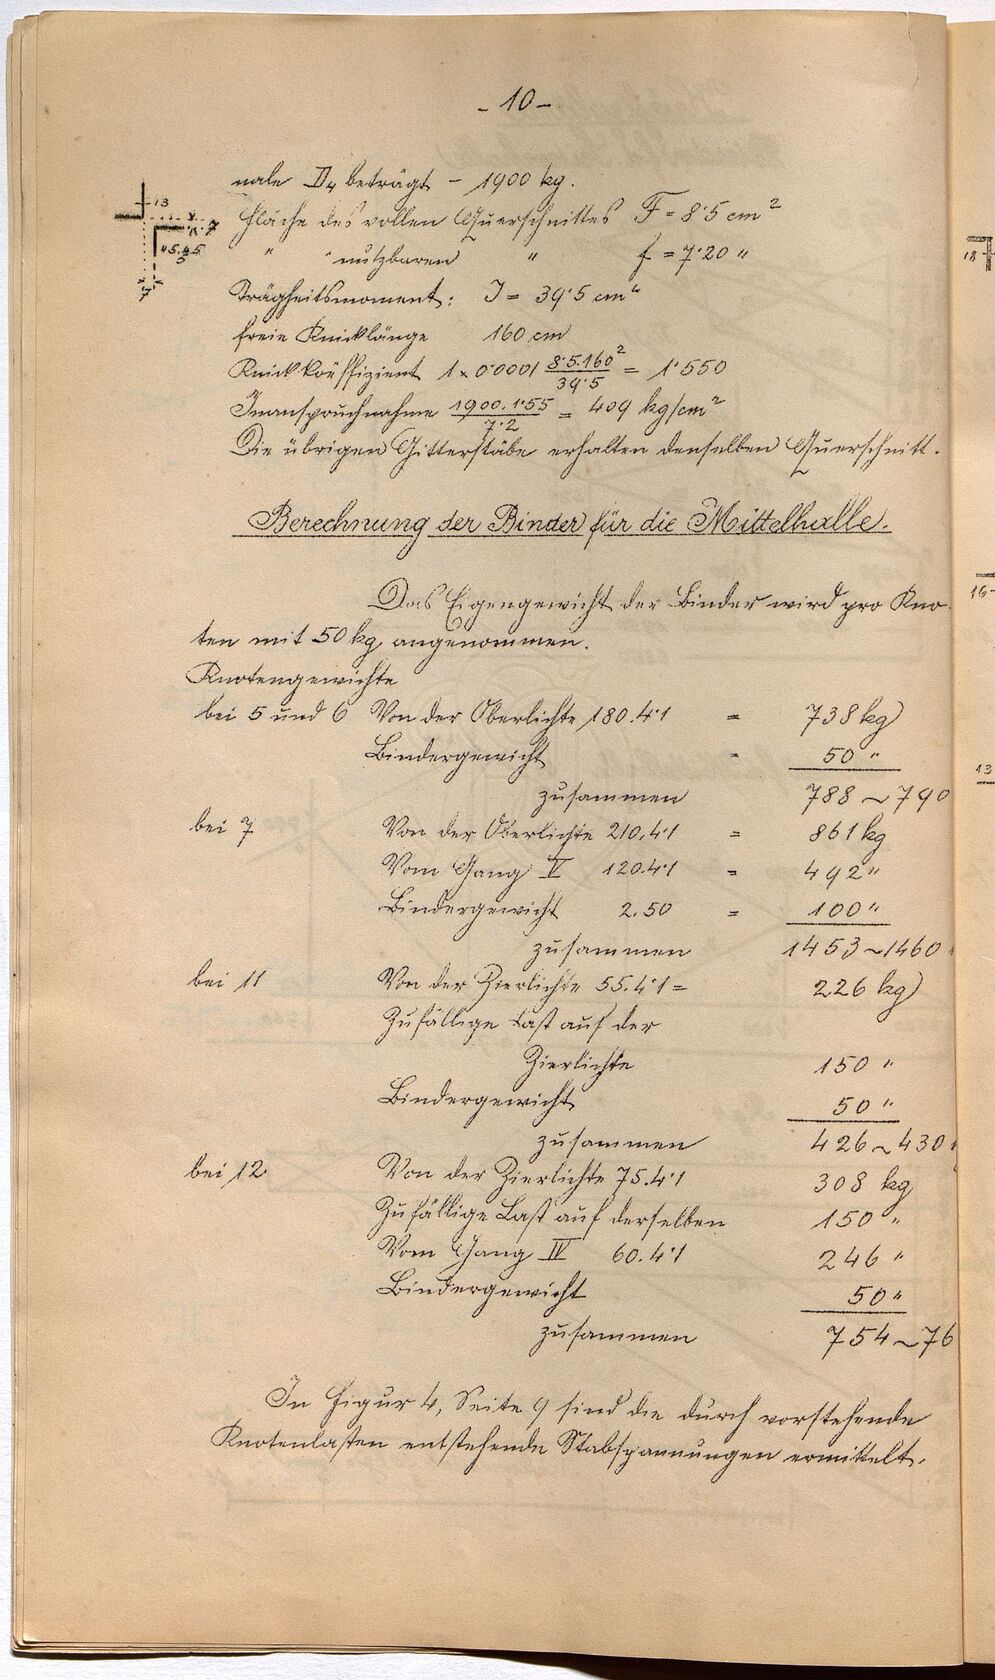 - 10 -
nale D₄ beträgt - 1900 kg.
Fläche des vollen Querschnittes F = 8·5 cm²
" " nutzbaren " f = 7·20 "
Trägheitsmoment: J = 39·5 cm⁴
freie Knicklänge 160 cm
Knickkoëffizient 1 + 0·0001 8·5.160²/39·5 = 1·550
Inanspruchnahme 1900.1·55/7·2 = 409 kg/cm²
Die übrigen Gitterstäbe erhalten denselben Querschnitt.
Berechnung der Binder für die Mittelhalle.
Das Eigengewicht der Binder wird pro Kno-
ten mit 50 kg angenommen.
Knotengewichte
bei 5 und 6 Von der Oberlichte 180.4·1 = 738 kg
Bindergewicht = 50 "
zusammen 788 ~ 790
bei 7 Von der Oberlichte 210.4·1 = 861 kg
Vom Gang V 120.4·1 = 492 "
Bindergewicht 2.50 = 100 "
zusammen 1453 ~ 1460
bei 11 Von der Zierlichte 55.4·1 = 226 kg
Zufällige Last auf der
Zierlichte 150 "
Bindergewicht 50 "
zusammen 426 ~ 430
bei 12 Von der Zierlichte 75.4·1 308 kg
Zufällige Last auf derselben 150 "
Vom Gang IV 60.4·1 246 "
Bindergewicht 50 "
zusammen 754 ~ 76
In Figur 4, Seite 9 sind die durch vorstehende
Knotenlasten entstehende Stabspannungen ermittelt.
13
45.45
7
18
16
13